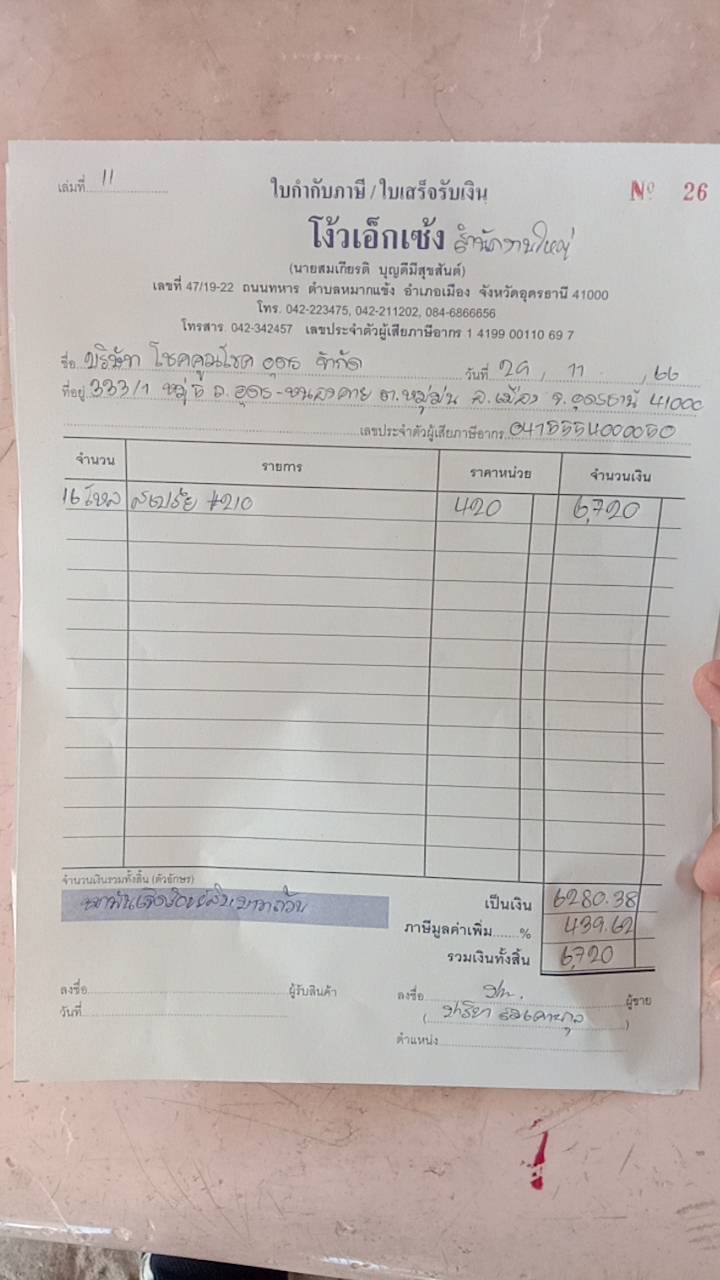 เล่มที่ 11
ใบกำกับภาษี / ใบเสร็จรับเงิน
Nº 26
โง้วเอ็กเซ้ง สำนักงานใหญ่
(นายสมเกียรติ บุญดีมีสุขสันต์)
เลขที่ 47/19-22 ถนนทหาร ตำบลหมากแข้ง อำเภอเมือง จังหวัดอุดรธานี 41000
โทร. 042-223475, 042-211202, 084-6866656
โทรสาร. 042-342457 เลขประจำตัวผู้เสียภาษีอากร 1 4199 00110 69 7
ชื่อ บริษัท โชคคูณโชค อุดร จำกัด วันที่ 29 / 11 / 66
ที่อยู่ 333/1 หมู่ 5 ถ.อุดร-หนองคาย ต.หมูม่น อ.เมือง จ.อุดรธานี 41000
เลขประจำตัวผู้เสียภาษีอากร 0415554000050
จำนวน รายการ ราคาหน่วย จำนวนเงิน
16 โหล สเปรย์ #210 420 6,720
จำนวนเงินรวมทั้งสิ้น (ตัวอักษร)
หกพันเจ็ดร้อยยี่สิบบาทถ้วน
เป็นเงิน 6280.38
ภาษีมูลค่าเพิ่ม.......% 439.62
รวมเงินทั้งสิ้น 6,720
ลงชื่อ ผู้รับสินค้า ลงชื่อ ผู้ขาย
วันที่
ตำแหน่ง